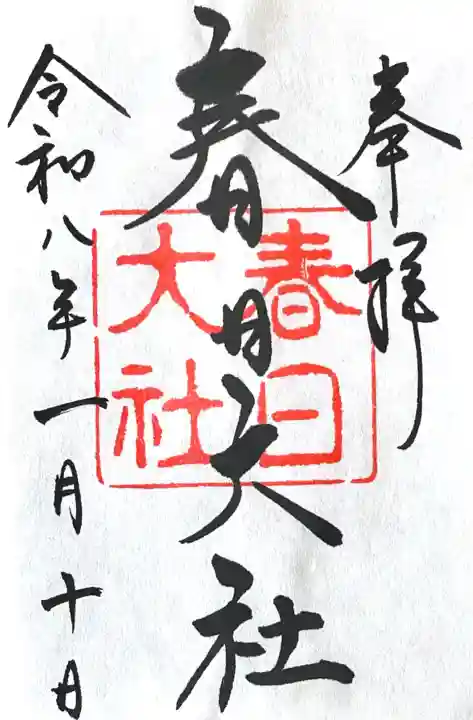 奉拝
春日大社
春日大社
令和八年一月十日